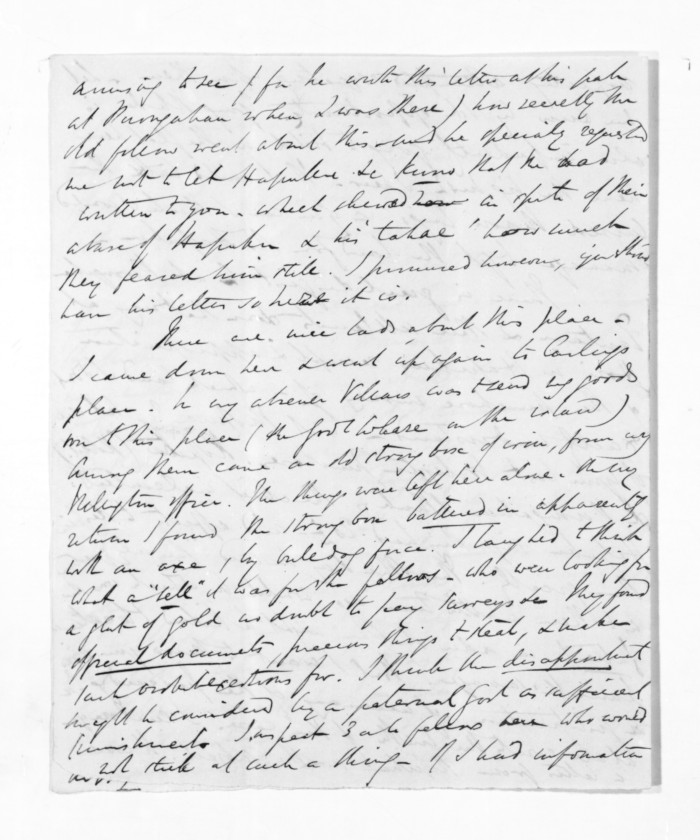 amusing to see (for he wrote this letter at his pah
at when I was there) how secretly the
old fellow went about this - and he specially requested
me not to let Hapuku &c know that he had
written to you - which shewed how in spite of their
abuse of Hapuku & his 'tahae' how much
they feared him still. I promised however, you should
have his letter so here it is.
There are nice lads about this place -
I came down here & went up again to
place. In my absence was to send my goods
on to this place (the Govt Whare on the island)
Among them came an old strong box of iron, from my
Wellington office. The things were left here alone - On my
return I found the strong box battered in apparently
with an axe, by bulldog force. I laughed to think
what a "sell" it was for the fellows - who were looking for
a glut of gold no doubt to pay surveys &c They found
official documents, precious things to steal, & to
for. I think the disappointment
might be considered by a paternal Govt as sufficient
punishment. I suspect 3 fellows here who would
not stick at such a thing - If I had information